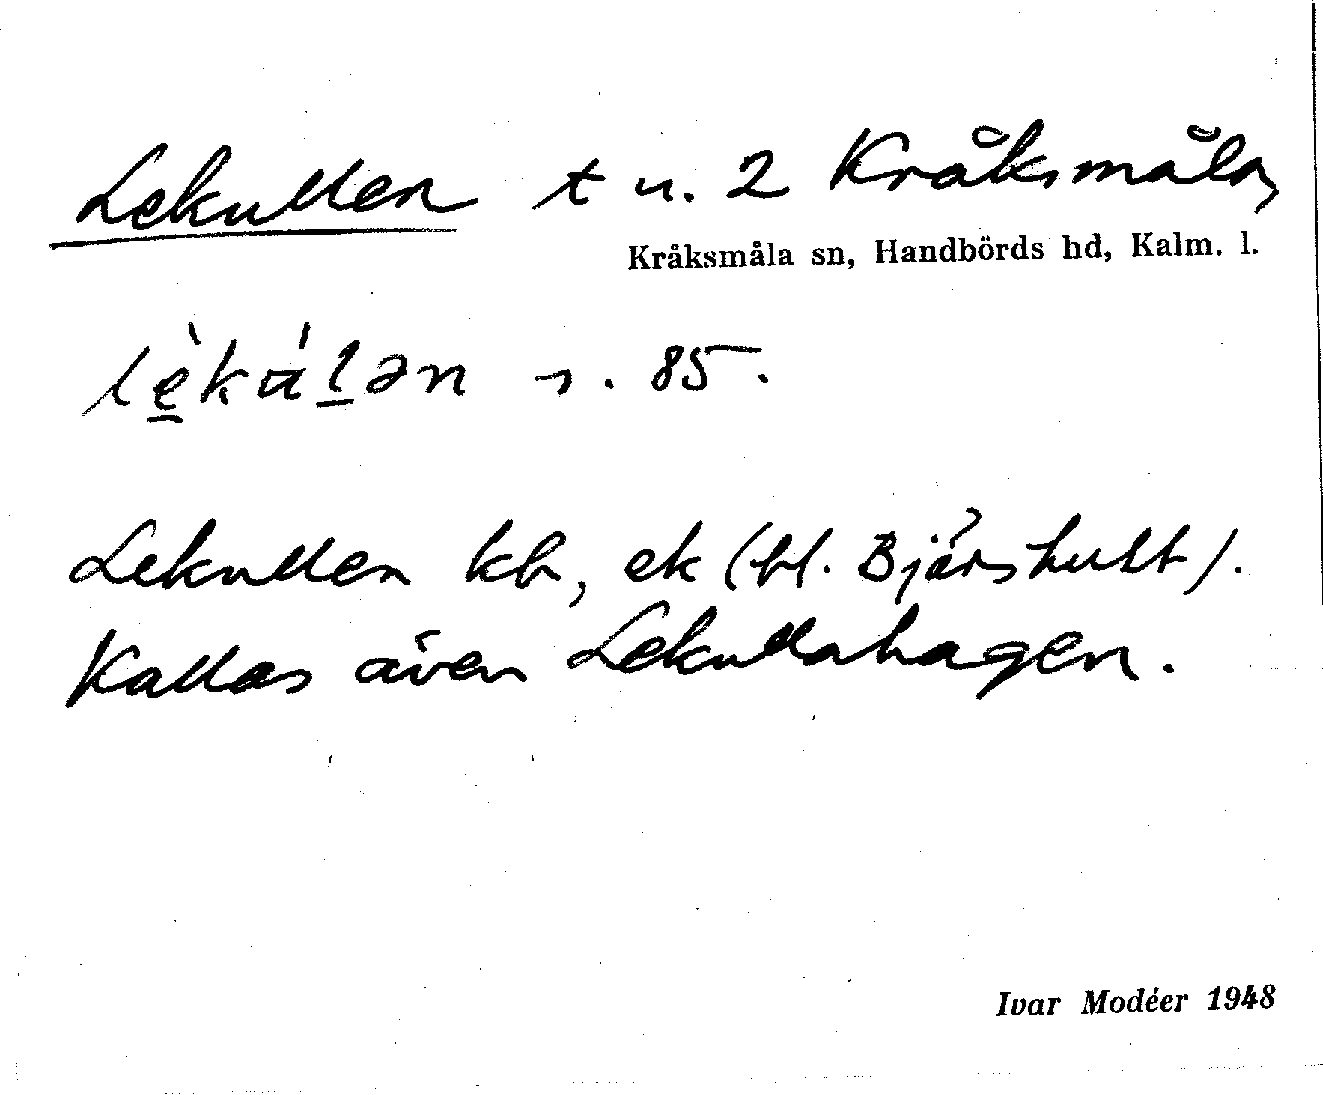 Lekullen t n. 2 Kråksmåla,
Kråksmåla sn, Handbörds hd, Kalm. l.
lè̠kúl̠ən s. 85.
Lekullen kb, ek (bl. Bjärshult).
Kallas även Lekullahagen.
Ivar Modéer 1948